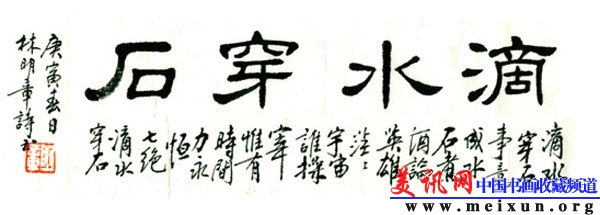 滴水穿石
滴水
穿石
事竟
成水
石煮
酒論
英雄
茫々
宇宙
誰操
宰
惟有
時間
力永
恒
七絕
滴水
穿石
庚寅春日
林明章詩书
美讯网 中国书画收藏频道
www.meixun.org